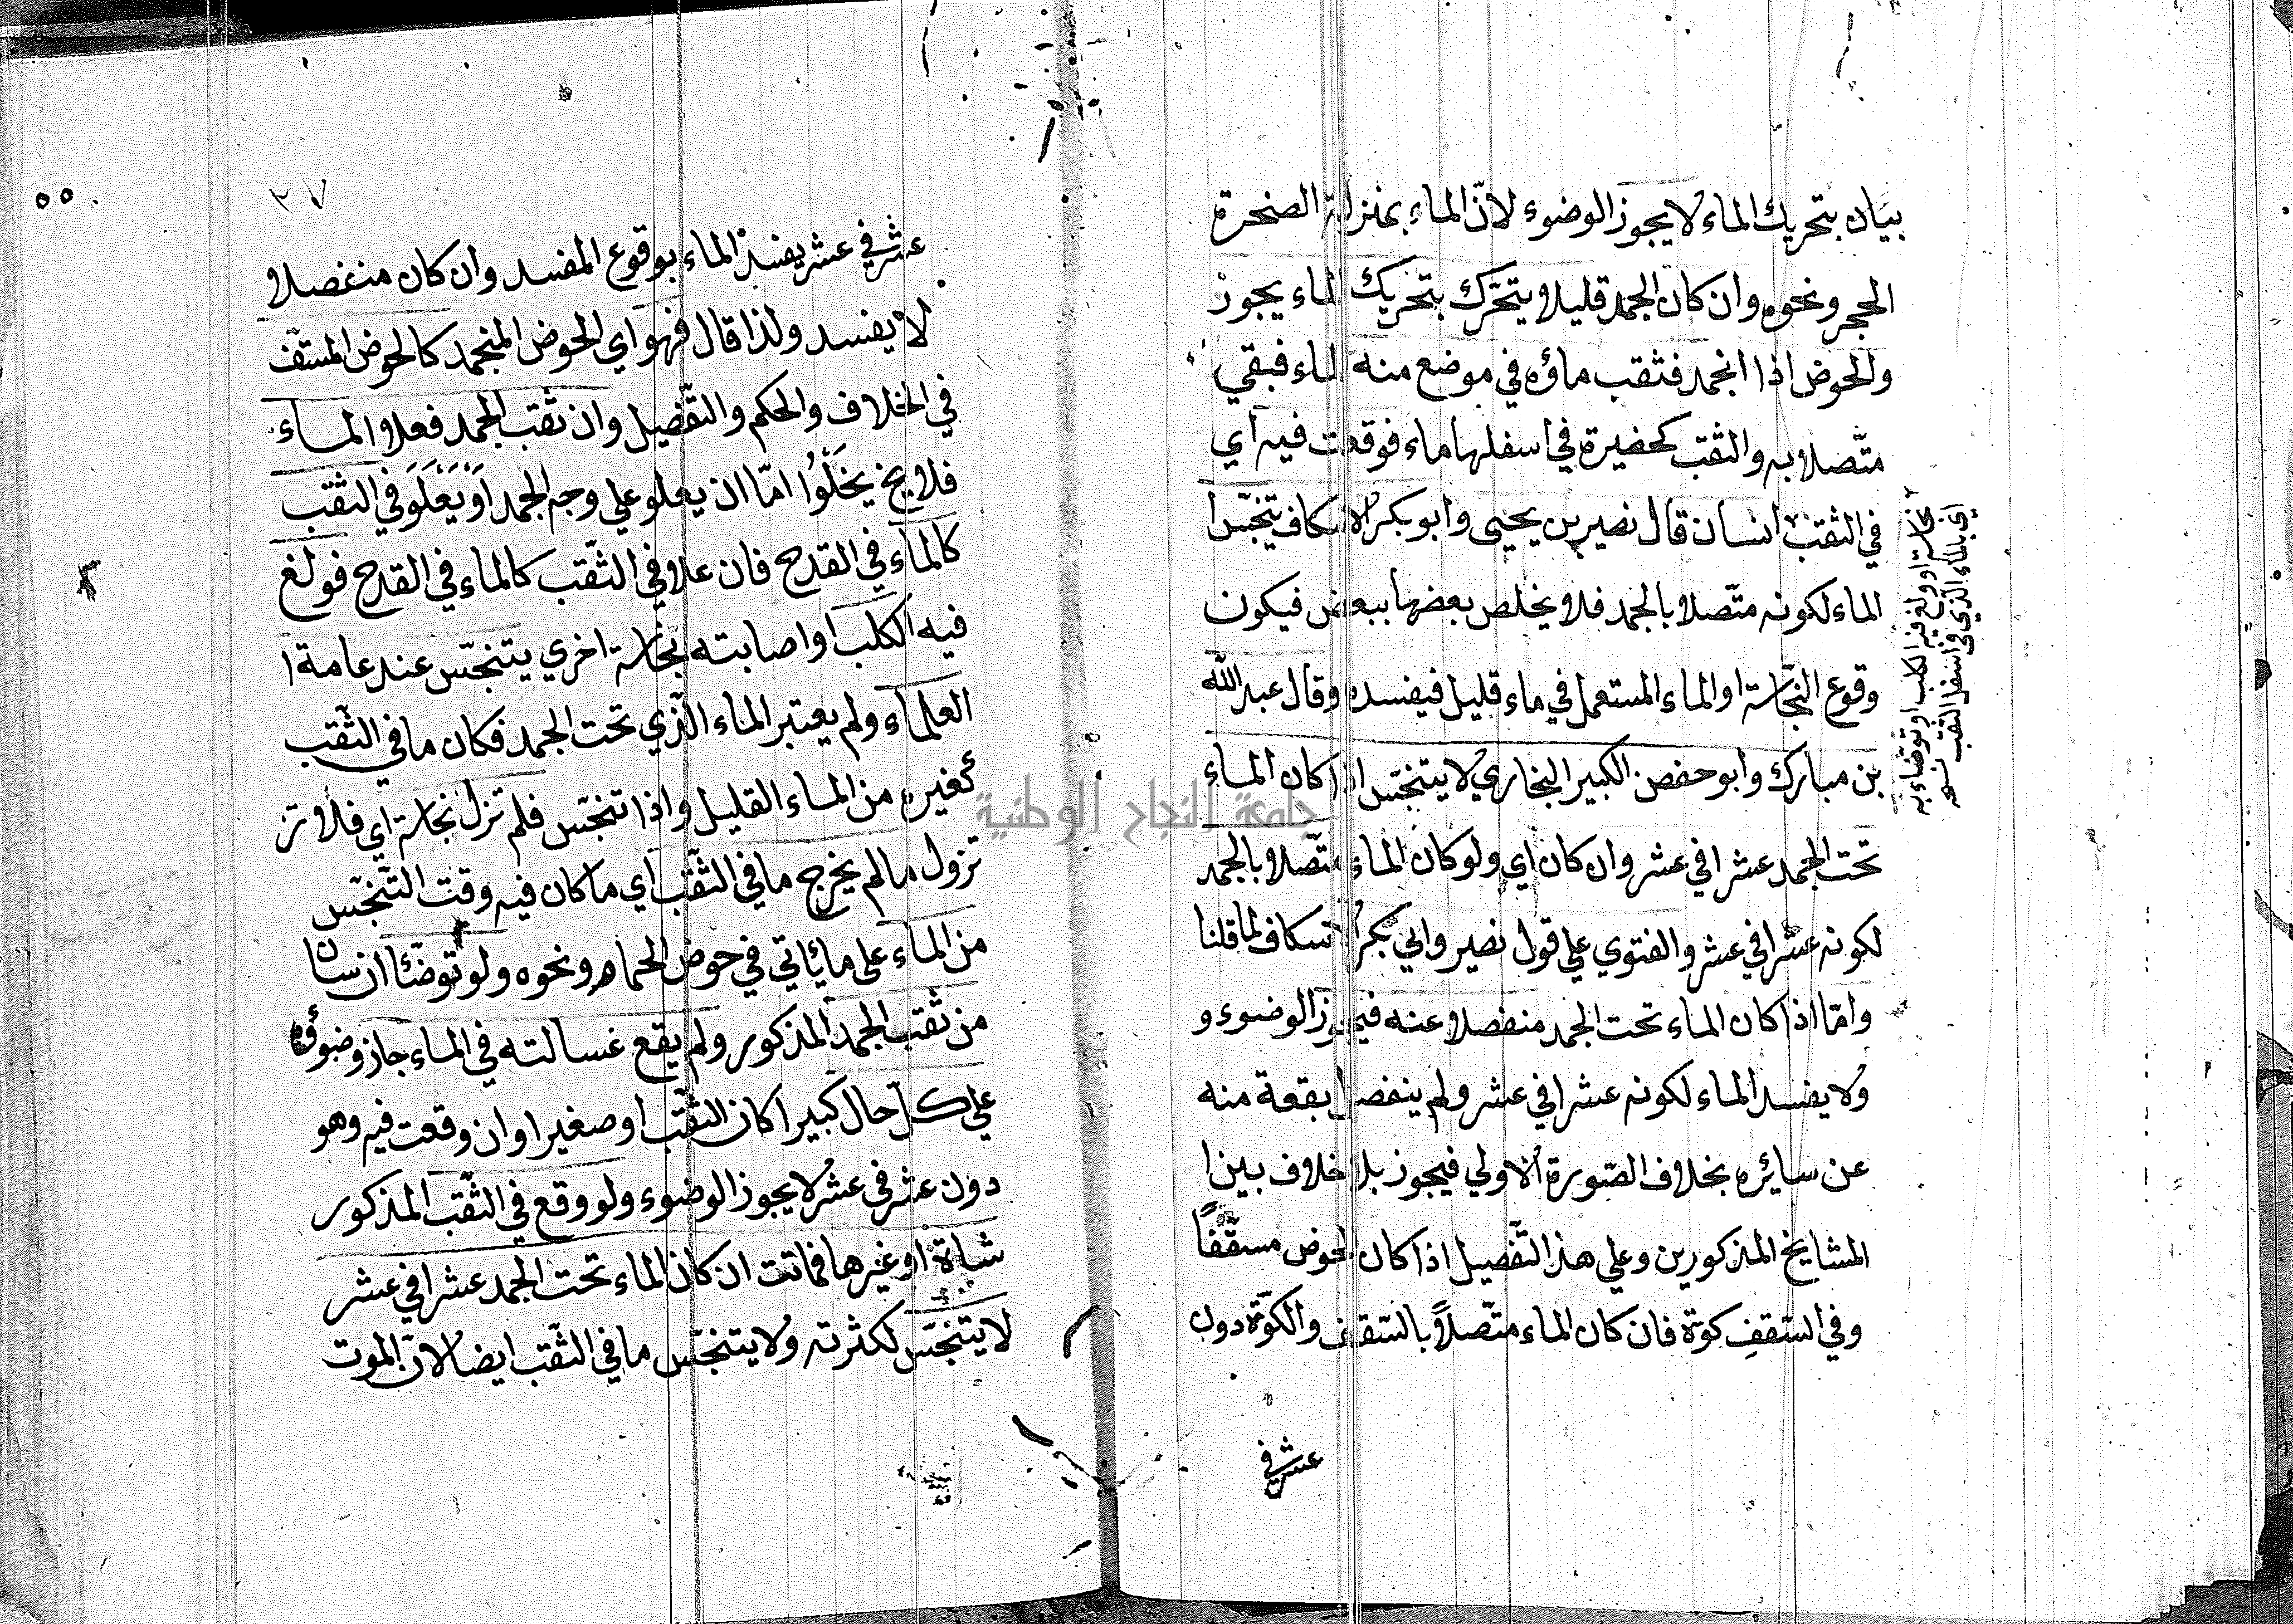 بيان بتحريك الماء لا يجوز الوضوء لانّ الماء بمنزلة الصخرة
الحجر ونحوه وان كان الجمد قليلا يتحرّك بتحريك الماء يجوز
والحوض اذا انجمد فثقب ماؤه في موضع منه الماء فبقي
متّصلا به والثقب كحفيرة في اسفلها ماء فوقعت فيه أي
في الثقب انسان قال نصير بن يحيى وابو بكر الاسكاف يتنجّس
الماء لكونه متّصلا بالجمد فلا يخلص بعضها ببعض فيكون
وقوع النجاسة او الماء المستعمل في ماء قليل فيفسده وقال عبد الله
بن مبارك وابو حفص الكبير البخاري لا يتنجّس اذا كان الماء
تحت الجمد عشرا في عشر وان كان اي ولو كان الماء متّصلا بالجمد
لكونه عشرا في عشر والفتوي علي قول نصير وابي بكر الاسكاف لما قلنا
وامّا اذا كان الماء تحت الجمد منفصلا عنه فيجوز الوضوء و
ولا يفسد الماء لكونه عشرا في عشر ولم ينفصل بقعة منه
عن سائره بخلاف الصّورة الاولي فيجوز بلا خلاف بين ا
المشايخ المذكورين وعلي هذا التّفصيل اذا كان الحوض مسقّفاً
وفي السّقف كوّة فان كان الماء متّصلاً بالسّقف والكوّة دون
عشر في
نجاسة او ولغ فيه الكلب او توضاء به
اي بالماء الذي في اسفل الثقب نسخه
جامعة النجاح الوطنية
٣٧
٥٥
عشر في عشر يفسد الماء بوقوع المفسد وان كان منفصلا
لا يفسد ولذا قال فهو اي الحوض المنجمد كالحوض المسقّف
في الخلاف والحكم والتّفصيل وان ثقب الجمد فعلا الماء
فلا يخ يخلُوا امّا ان يعلو علي وجه الجمد اَوْ يَعْلَوَ في الثقب
كالماء في القدح فان علا في الثّقب كالماء في القدح فولغ
فيه الكلب او اصابته نجاسة اخري يتنجّس عند عامة ا
العلماء ولم يعتبر الماء الّذي تحت الجمد فكان ما في الثّقب
كغيره من الماء القليل واذا تنجّس فلم تزل نجاسة اي فلا تز
تزول ما لم يخرج ما في الثّقب اي ما كان فيه وقت التّنجّس
من الماء على ما يأتي في حوض الحمام ونحوه ولو توضّأ انسان
من ثقب الجمد المذكور ولم يقع غسالته في الماء جاز وضوؤه
علي كلّ حال كبيرا كان الثّقب او صغيرا وان وقعت فيه وهو
دون عشر في عشر لا يجوز الوضوء ولو وقع في الثّقب المذكور
شاة او غيرها فماتت ان كان الماء تحت الجمد عشرا في عشر
لا يتنجّس لكثرته ولا يتنجّس ما في الثّقب ايضا لانّ الموت